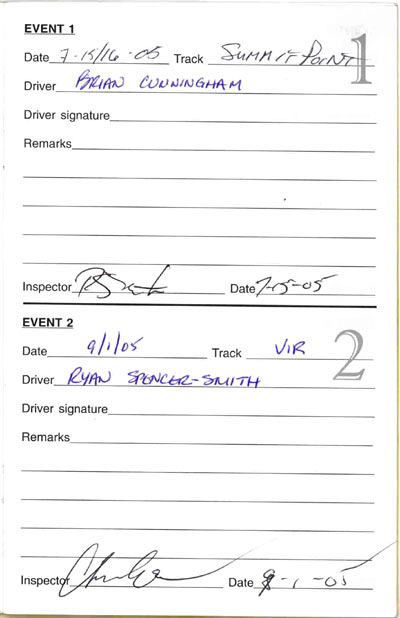 EVENT 1
Date 7-15/16-05 Track SUMMIT POINT 1
Driver BRIAN CUNNINGHAM
Driver signature
Remarks
Inspector Date 7-15-05
EVENT 2
Date 9/1/05 Track VIR 2
Driver RYAN SPENCER-SMITH
Driver signature
Remarks
Inspector Date 9-1-05